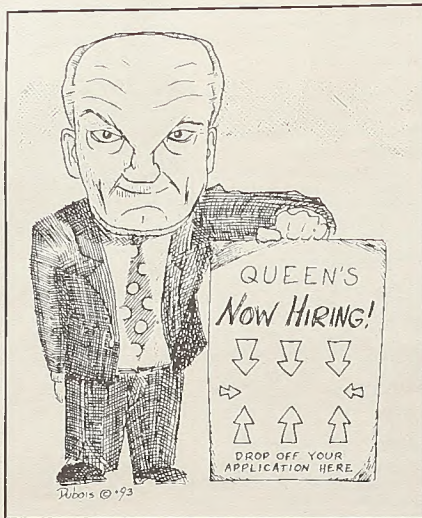 QUEEN'S
NOW HIRING!
DROP OFF YOUR
APPLICATION HERE
Dubois © '93